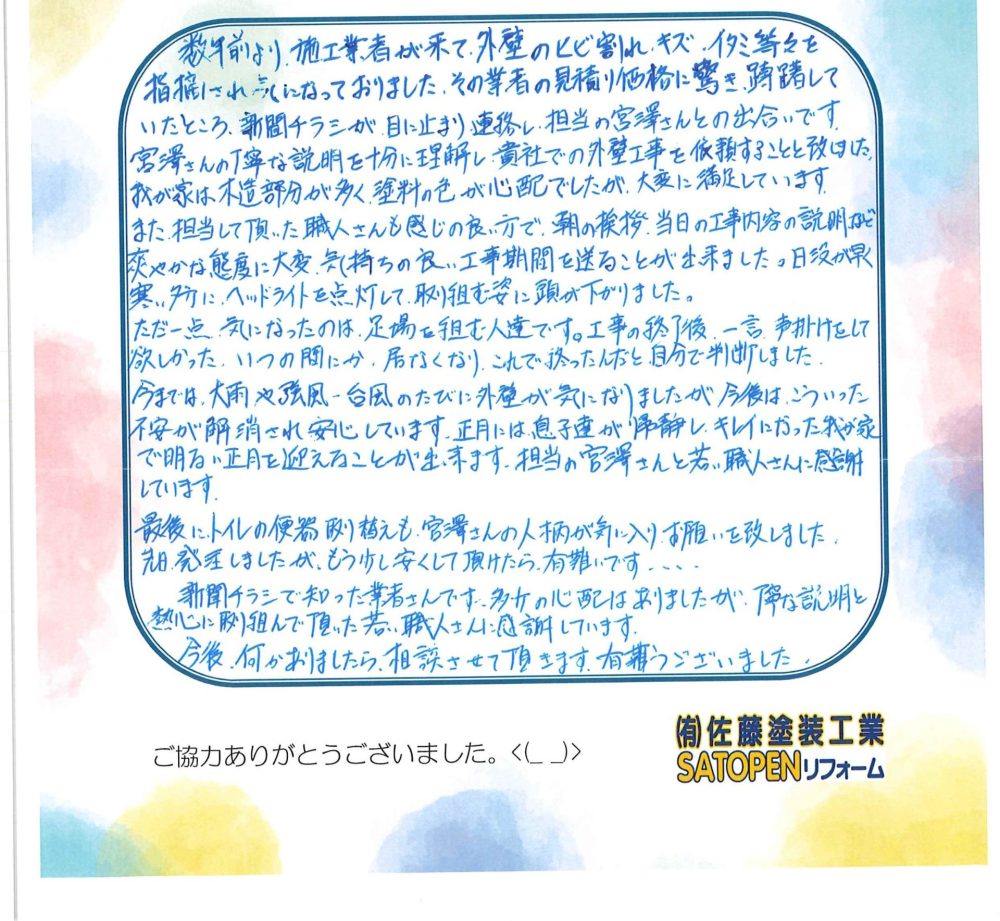 数年前より、施工業者が来て、外壁のヒビ割れ、キズ、イタミ等々を
指摘され、気になっておりました、その業者の見積り価格に驚き、躊躇して
いたところ、新聞チラシが、目に止まり連絡し、担当の宮澤さんとの出合いです。
宮澤さんの丁寧な説明を十分に理解し、貴社での外壁工事を依頼することと致しました、
我が家は、木造部分が多く、塗料の色が心配でしたが、大変に満足しています。
また、担当して頂いた職人さんも感じの良い方で、朝の挨拶、当日の工事内容の説明など
爽やかな態度に大変、気持ちの良い工事期間を送ることが出来ました。日没が早く
寒い夕方に、ヘッドライトを点灯して、取り組む姿に頭が下がりました。
ただ一点、気になったのは、足場を組む人達です。工事の終了後、一言、声掛けをして
欲しかった、いつの間にか、居なくなり、これで、終ったんだと自分で判断しました、
今までは、大雨や強風-台風のたびに外壁が気になりましたが、今後は、こういった
不安が解消され安心しています、正月には、息子達が帰静し、キレイになった我が家
で明るい正月を迎えることが出来ます、担当の宮澤さんと若い職人さんに感謝
しています。
最後に、トイレの便器取り替えも、宮澤さんの人柄が気に入り、お願いを致しました、
先日、発注しましたが、もう少し安くして頂けたら、有難いです、、、、
新聞チラシで知った業者さんです、多少の心配はありましたが、丁寧な説明と
熱心に取り組んで頂いた若い職人さんに感謝しています。
今後、何かありましたら、相談させて頂きます、有難うございました、
ご協力ありがとうございました。<(_ _)>
㈲佐藤塗装工業
SATOPENリフォーム